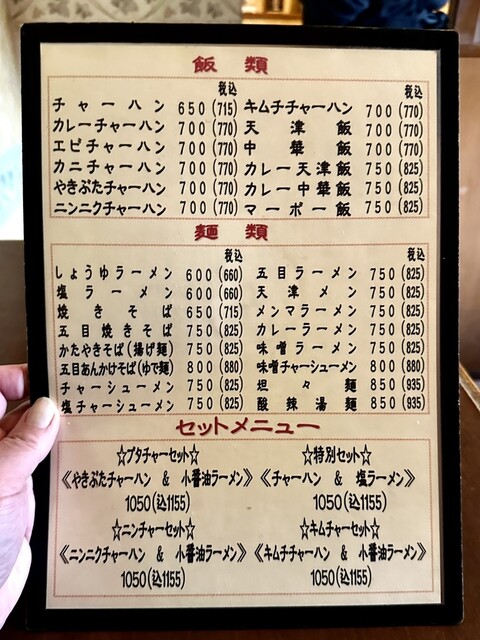 飯類
税込
チャーハン 650(715)
カレーチャーハン 700(770)
エビチャーハン 700(770)
カニチャーハン 700(770)
やきぶたチャーハン 700(770)
ニンニクチャーハン 700(770)
税込
キムチチャーハン 700(770)
天津飯 700(770)
中華飯 700(770)
カレー天津飯 750(825)
カレー中華飯 750(825)
マーボー飯 750(825)
麺類
税込
しょうゆラーメン 600(660)
塩ラーメン 600(660)
焼きそば 650(715)
五目焼きそば 750(825)
かたやきそば(揚げ麺) 750(825)
五目あんかけそば(ゆで麺) 800(880)
チャーシューメン 750(825)
塩チャーシューメン 750(825)
税込
五目ラーメン 750(825)
天津メン 750(825)
メンマラーメン 750(825)
カレーラーメン 750(825)
味噌ラーメン 750(825)
味噌チャーシューメン 800(880)
坦々麺 850(935)
酸辣湯麺 850(935)
セットメニュー
☆ブタチャーセット☆
《やきぶたチャーハン & 小醤油ラーメン》
1050(込1155)
☆特別セット☆
《チャーハン & 塩ラーメン》
1050(込1155)
☆ニンチャーセット☆
《ニンニクチャーハン & 小醤油ラーメン》
1050(込1155)
☆キムチャーセット☆
《キムチチャーハン & 小醤油ラーメン》
1050(込1155)